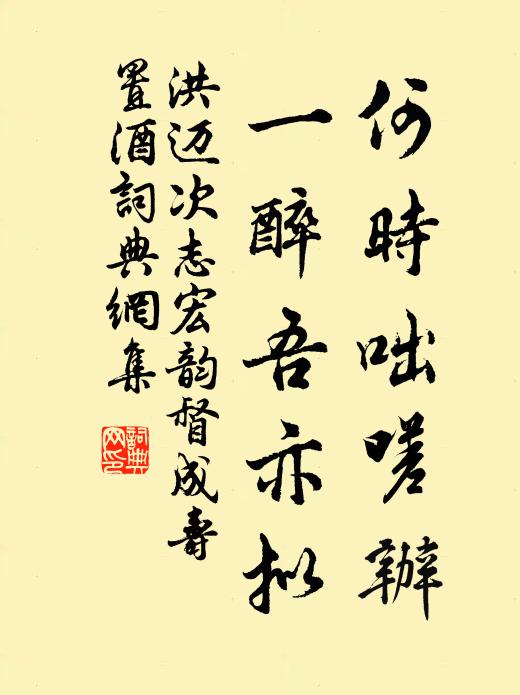 何時咄嗟辦
一醉吾亦拟
洪迈次志宏韵督成壽
置酒詞典網集
詞典
网印